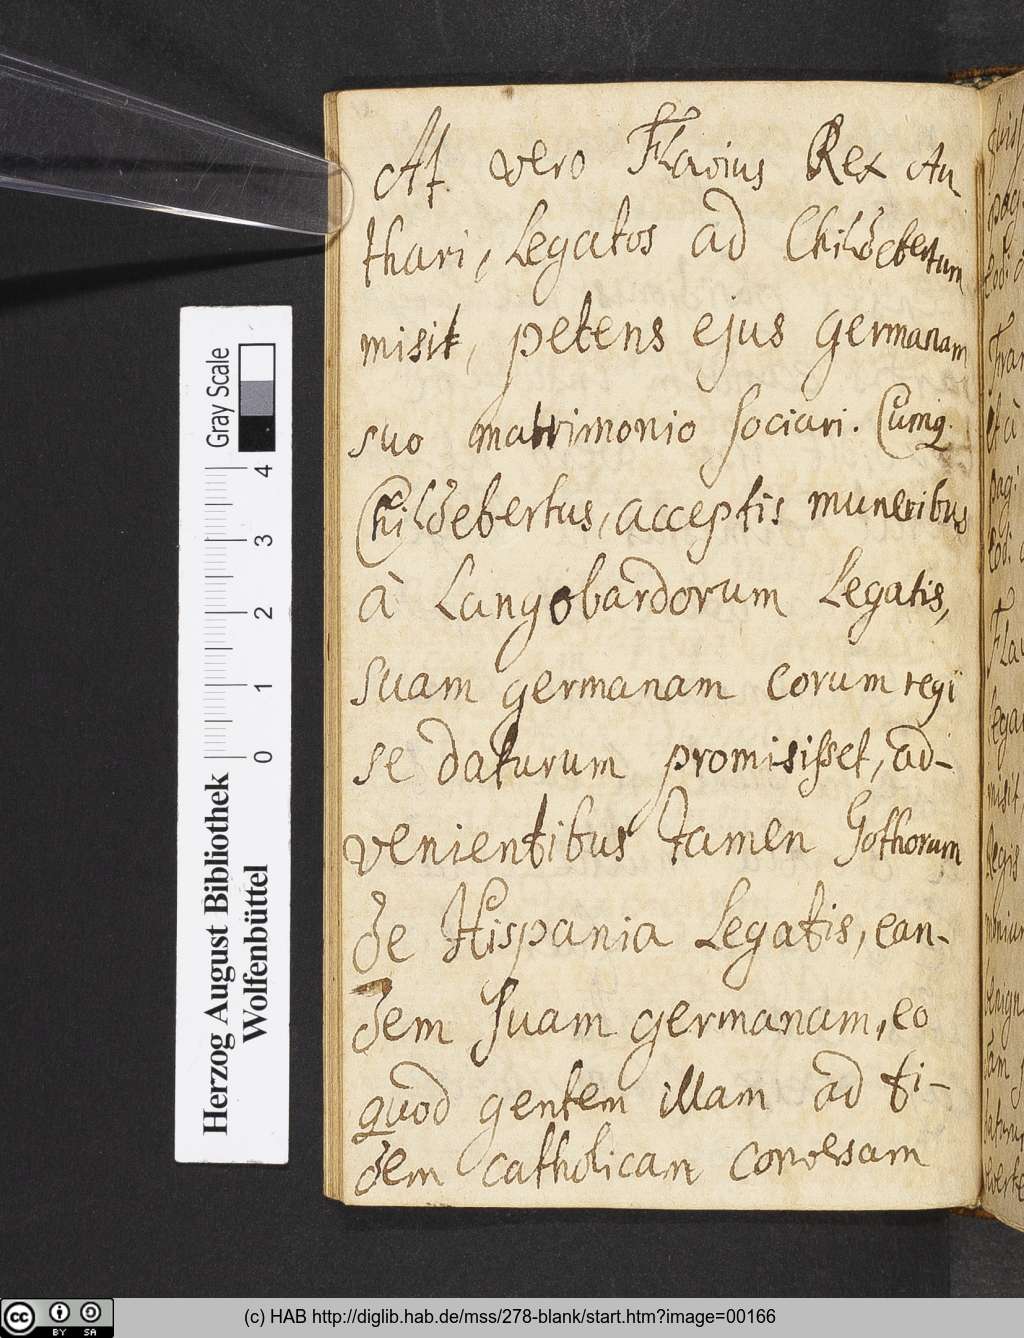 At vero Flavius Rex Au
thari, Legatos ad Childebertum
misit, petens ejus germanam
suo matrimonio sociari. Cumq.
Childebertus, acceptis muneribus
à Langobardorum Legatis,
suam germanam eorum regi
se daturum promisisset, ad-
venientibus tamen Gothorum
de Hispania Legatis, ean-
dem suam germanam, eo
quod gentem illam ad fi-
dem catholicam conversam
Herzog August Bibliothek
Wolfenbüttel
0 1 2 3 4
Gray Scale
cc BY SA
(c) HAB http://diglib.hab.de/mss/278-blank/start.htm?image=00166